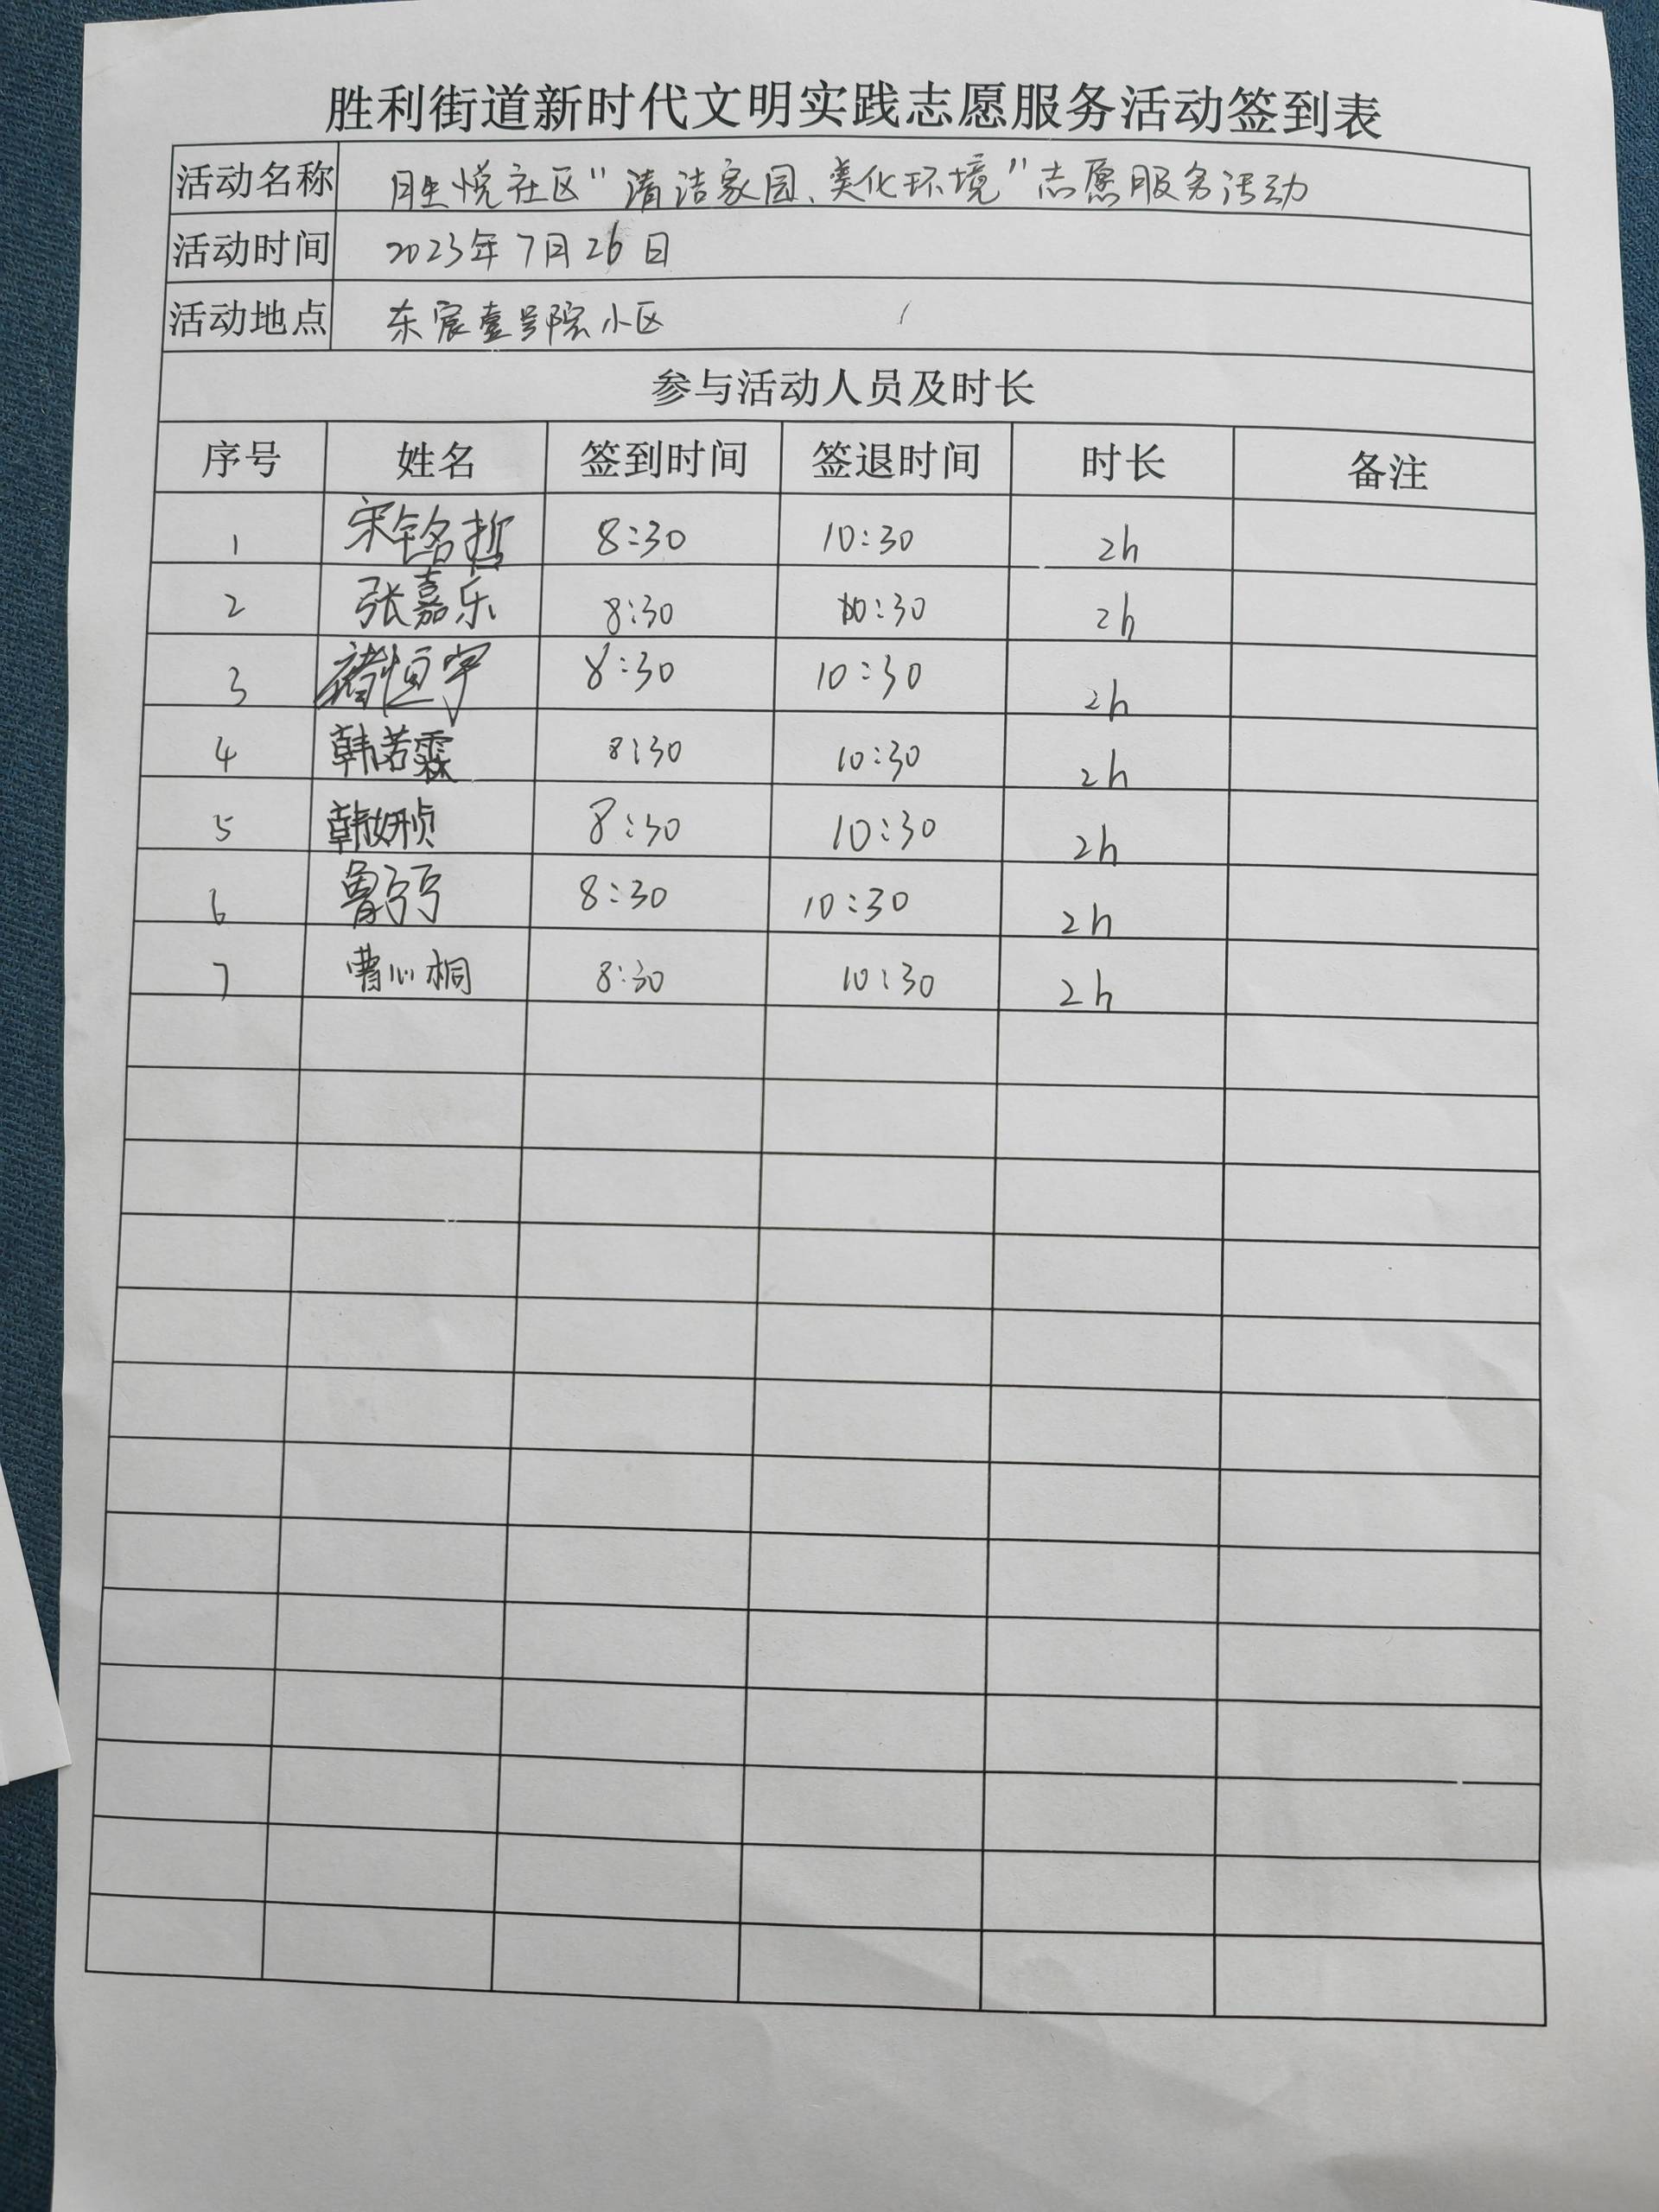 胜利街道新时代文明实践志愿服务活动签到表
活动名称 胜悦社区“清洁家园、美化环境”志愿服务活动
活动时间 2023年7月26日
活动地点 东宸壹号院小区
参与活动人员及时长
序号 姓名 签到时间 签退时间 时长 备注
1 宋铭哲 8:30 10:30 2h
2 张嘉乐 8:30 10:30 2h
3 褚恒宇 8:30 10:30 2h
4 韩若霖 8:30 10:30 2h
5 韩妍桢 8:30 10:30 2h
6 8:30 10:30 2h
7 曹心桐 8:30 10:30 2h